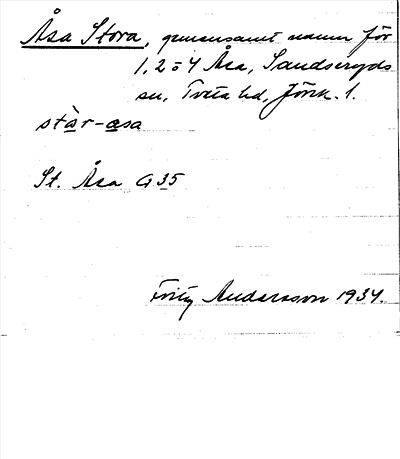 Åsa Stora, gemensamt namn för
1, 2 o 4 Åsa, Sandseryds
sn, Tveta hd, Jönk. l.
stàr-asa
St. Åsa G 35
Fritz Andersson 1934.